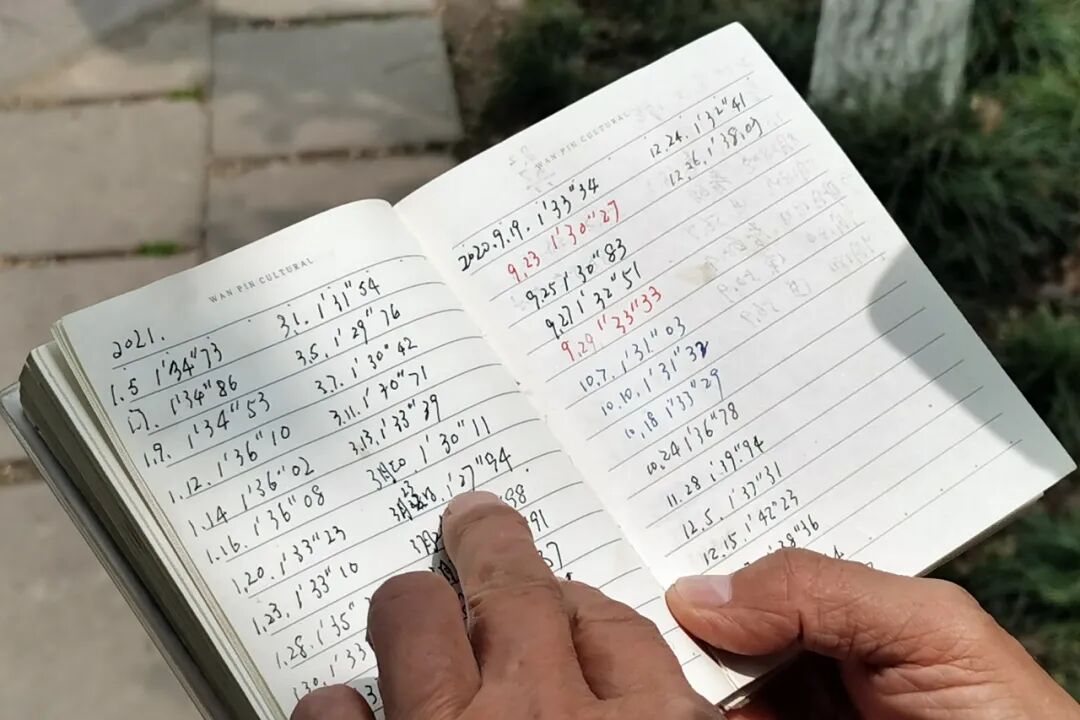 WAN PIN CULTURAL
2021.
1.5 1'34"73
1.7. 1'34"86
1.9. 1'34"53
1.12. 1'36"10
1.14 1'36"02
1.16. 1'36"08
1.20. 1'33"23
1.23. 1'33"10
1.28. 1'35"
1'33
3.1. 1'31"54
3.5. 1'29"76
3.7. 1'30"42
3.11. 1'30"71
3.13. 1'33"39
3月20. 1'30"11
1'27"94
88
91
37
WAN PIN CULTURAL
2020.9.19. 1'33"34
9.23 1'30"27
9.25 1'30"83
9.27 1'32"51
9.29. 1'33"33
10.7. 1'31"03
10.10. 1'31"32
10.18 1'33"29
10.24 1'36"78
11.28 1'39"94
12.5. 1'37"31
12.15. 1'42"23
12.24. 1'32"41
12.26. 1'38.09